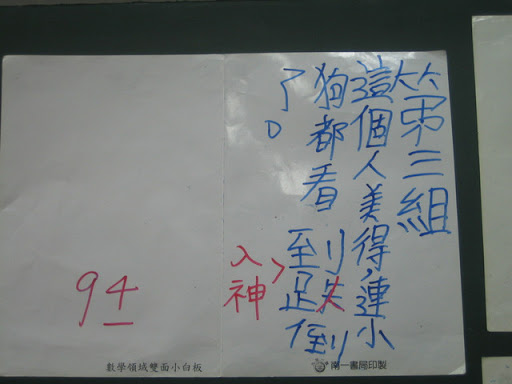 第三組
這個人美得,連小
狗都看到跌倒
入神
了。
94
數學領域雙面小白板
南一書局印製